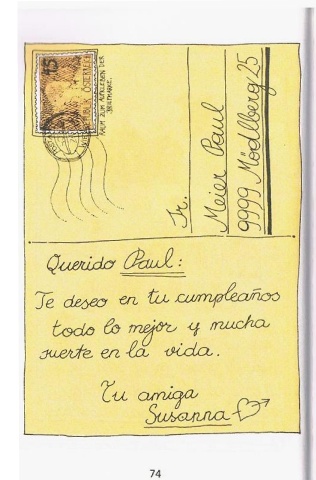 15
REPUBLIK ÖSTERREICH
RAUM ZUM AUFKLEBEN DER
BRIEFMARKE.
Fr.
Meier Paul
9999 Mödlberg 25
Querido Paul:
Te deseo en tu cumpleaños
todo lo mejor y mucha
suerte en la vida.
Tu amiga
Susanna
74